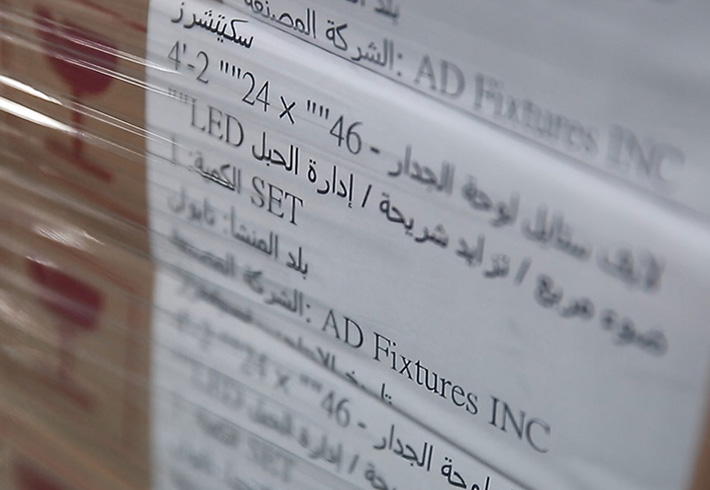 بلد
الشركة المصنعة: AD Fixtures INC
سكيتشرز
لايف ستايل لوحة الجدار - 46"" x 24"" 2-'4
ضوء مربع / تزايد شريحة / إدارة الحبل LED""
الكمية: 1 SET
بلد المنشأ: تايوان
الشركة المصنعة: AD Fixtures INC
لوحة الجدار - 46"" x 24"" 2-'4
/ إدارة الحبل LED
SET